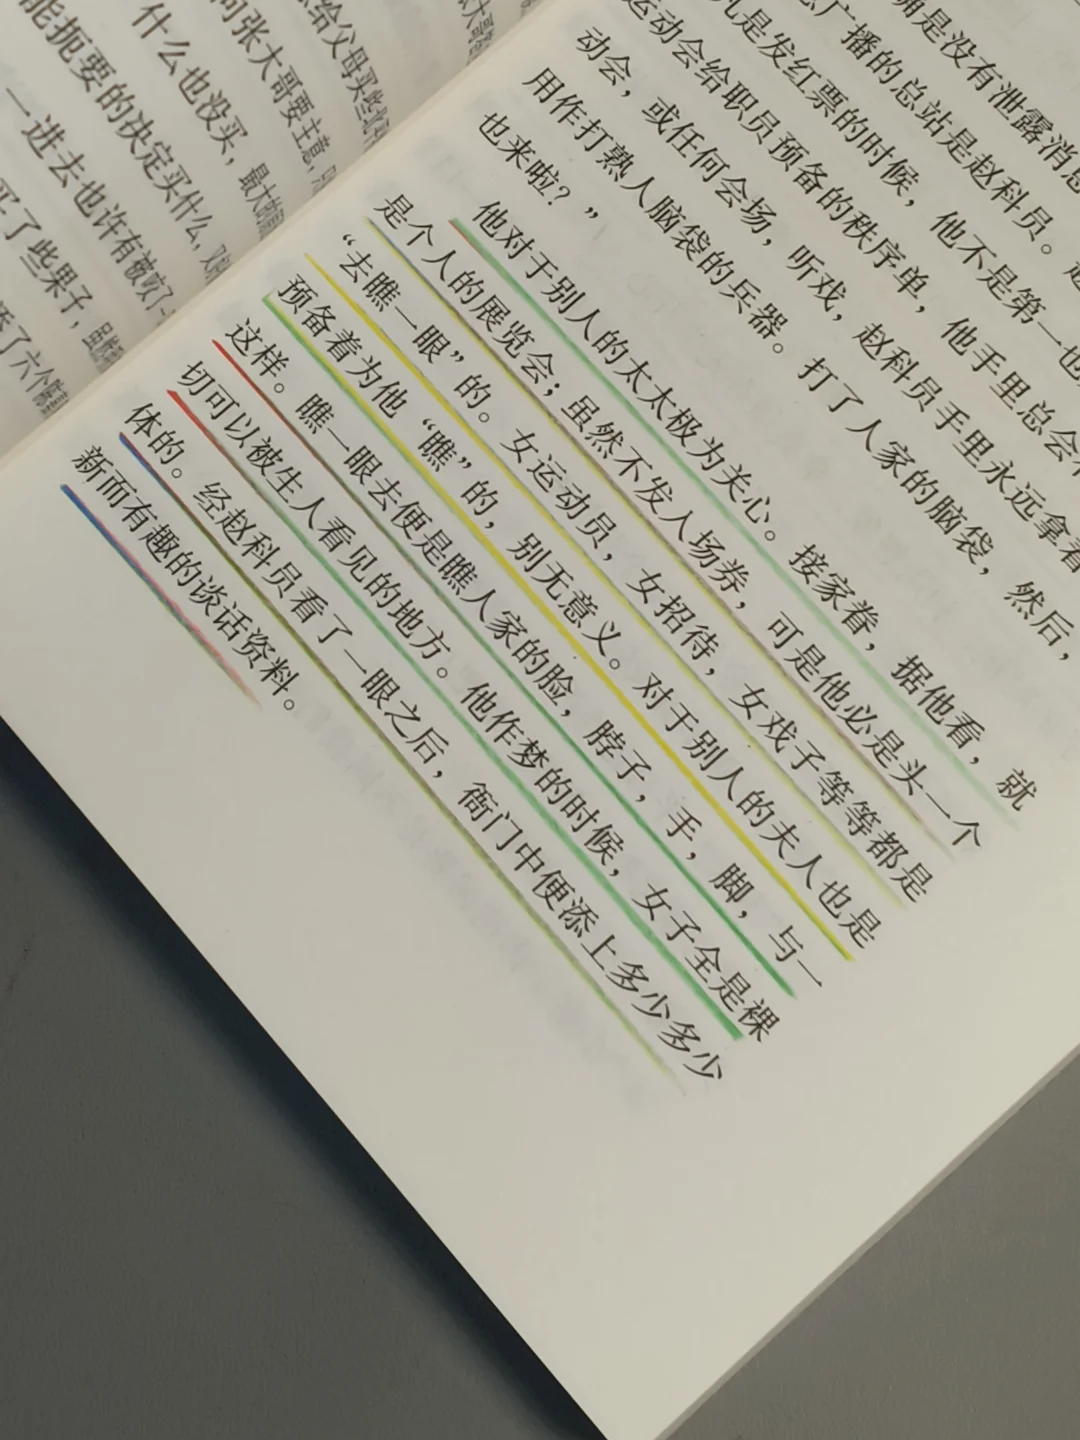 什么也没买，最大的原
向张大哥要主意，只
给父母买些北平
能扼要的决定买什么，
一进去也许有被咬了
买了些果子，虽然
了六个
拥是没有泄露消息
广播的总站是赵科员。
凡是发红票的时候，他不是第一也
运动会给职员预备的秩序单，他手里总会有
动会，或任何会场，听戏，赵科员手里永远拿着
用作打熟人脑袋的兵器。打了人家的脑袋，然后，
也来啦？”
他对于别人的太太极为关心。接家眷，据他看，就
是个人的展览会；虽然不发入场券，可是他必是头一个
“去瞧一眼”的。女运动员，女招待，女戏子等等都是
预备着为他“瞧”的，别无意义。对于别人的夫人也是
这样。瞧一眼去便是瞧人家的脸，脖子，手，脚，与一
切可以被生人看见的地方。他作梦的时候，女子全是裸
体的。经赵科员看了一眼之后，衙门中便添上多少多少
新而有趣的谈话资料。